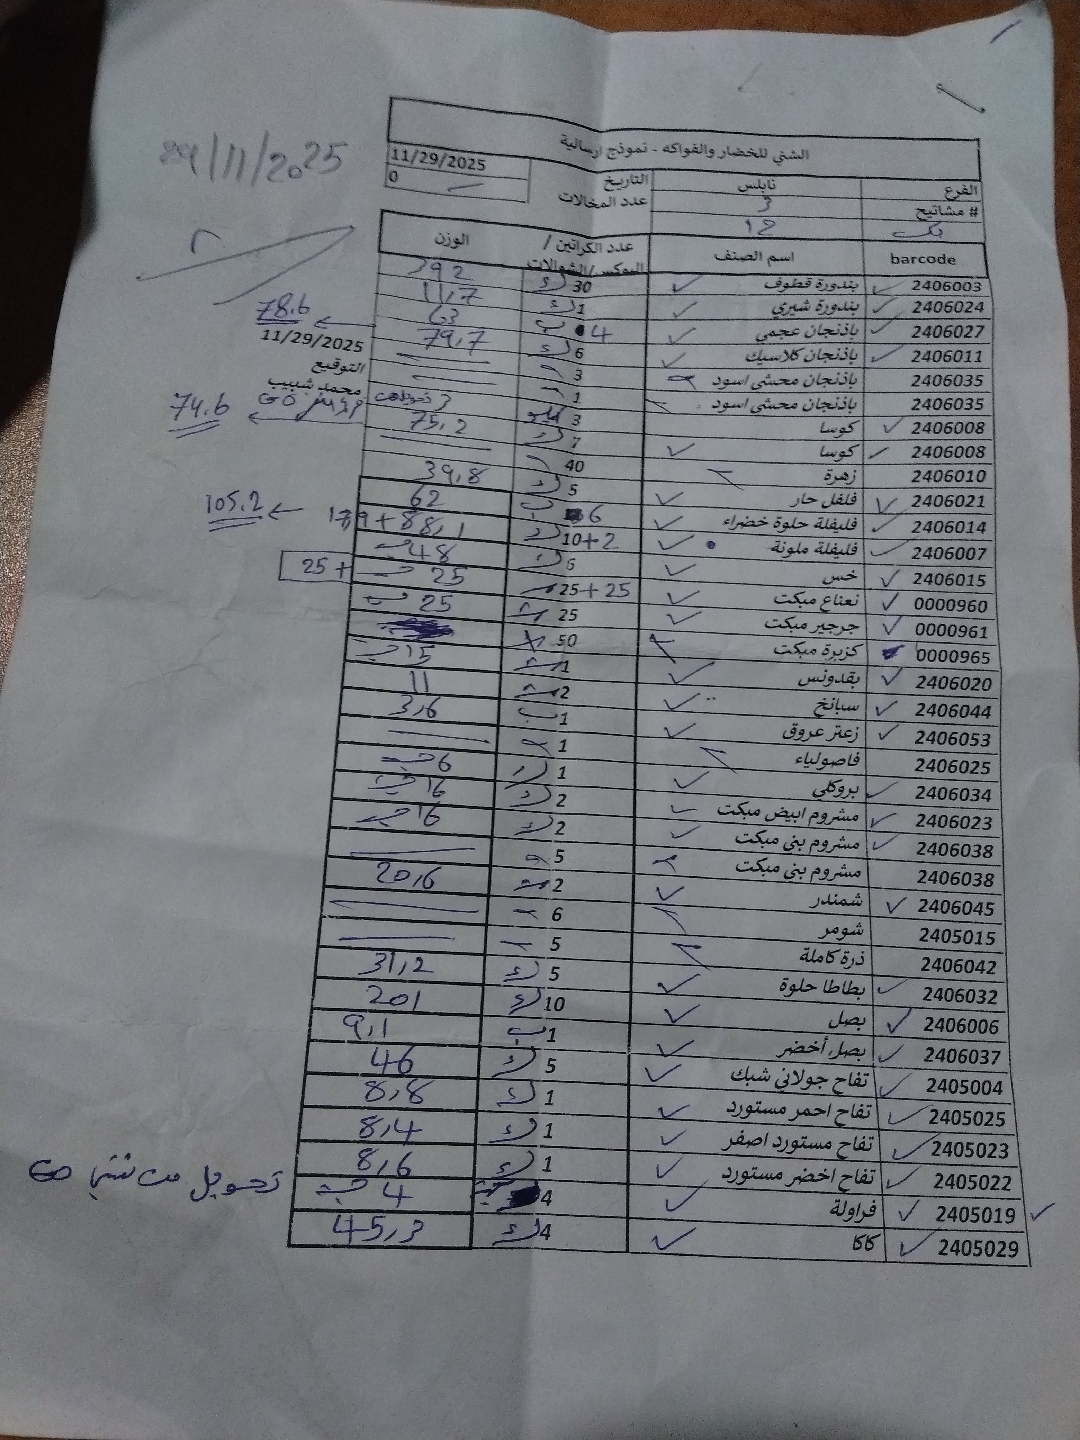 29/11/2025
الشني للخضار والفواكه - نموذج ارسالية
الفرع نابلس التاريخ 11/29/2025
# مشاتيح 3 عدد المخالات 0
بك 12
barcode اسم الصنف عدد الكراتين / البوكس/الشوالات الوزن
2406003 بندورة قطوف 30 392
2406024 بندورة شيري 1 11,7
2406027 باذنجان عجمي 4 ب 63
2406011 باذنجان كلاسيك 6 79,7
78.6
11/29/2025
التوقيع
محمد شبيب
2406035 باذنجان محشي اسود 3
2406035 باذنجان محشي اسود 1
2406008 كوسا 3
2406008 كوسا 7 75,2
74.6
2406010 زهرة 40
2406021 فلفل حار 5 39,8
2406014 فليفلة حلوة خضراء 6 ب 62
2406007 فليفلة ملونة 10+2 88,1 +
105.2
2406015 خس 6 48
0000960 نعناع مبكت 25+25 25 + 25
0000961 جرجير مبكت 25 25
0000965 كزبرة مبكت 50
2406020 بقدونس 1 15
2406044 سبانخ 2 11
2406053 زعتر عروق 1 ب 3,6
2406025 فاصولياء 1
2406034 بروكلي 1 6
2406023 مشروم ابيض مبكت 2 16
2406038 مشروم بني مبكت 2 16
2406038 مشروم بني مبكت 5
2406045 شمندر 2 20,6
2405015 شومر 6
2406042 ذرة كاملة 5
2406032 بطاطا حلوة 5 31,2
2406006 بصل 10 201
2406037 بصل أخضر 1 ب 9,1
2405004 تفاح جولاني شبك 5 46
2405025 تفاح احمر مستورد 1 8,8
2405023 تفاح مستورد اصفر 1 8,4
2405022 تفاح اخضر مستورد 1 8,6
2405019 فراولة 4 4 تحويل من
2405029 كاكا 4 45,3